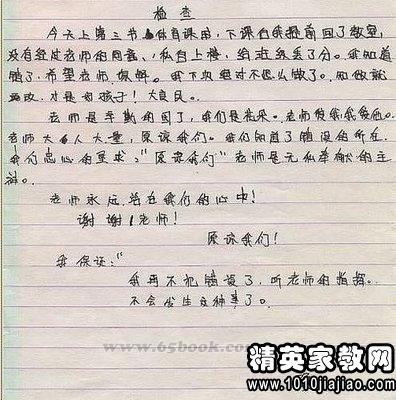 检 查
今天上第三节体育课时，下课后我提前回了教室，
没有经过老师的同意，私自上楼，给班级丢了分。我知道
错了，希望老师原谅。我下次绝对不怎么做了。知错就
要改，才是好孩子！大良民。
老师是辛勤的园丁，我们是花朵。老师爱我我爱他。
老师大人大量，原谅我们。我们知道了错误的所在。
我们忠心的要求："原谅我们"老师是无私奉献的主
老师永远站在我们的心中！
谢谢老师！
原谅我们！
我保证："
我再不犯错误了，听老师的指挥。
不会发生这种事了。
www.65book.com
精英家教网
www.1010jiajiao.com